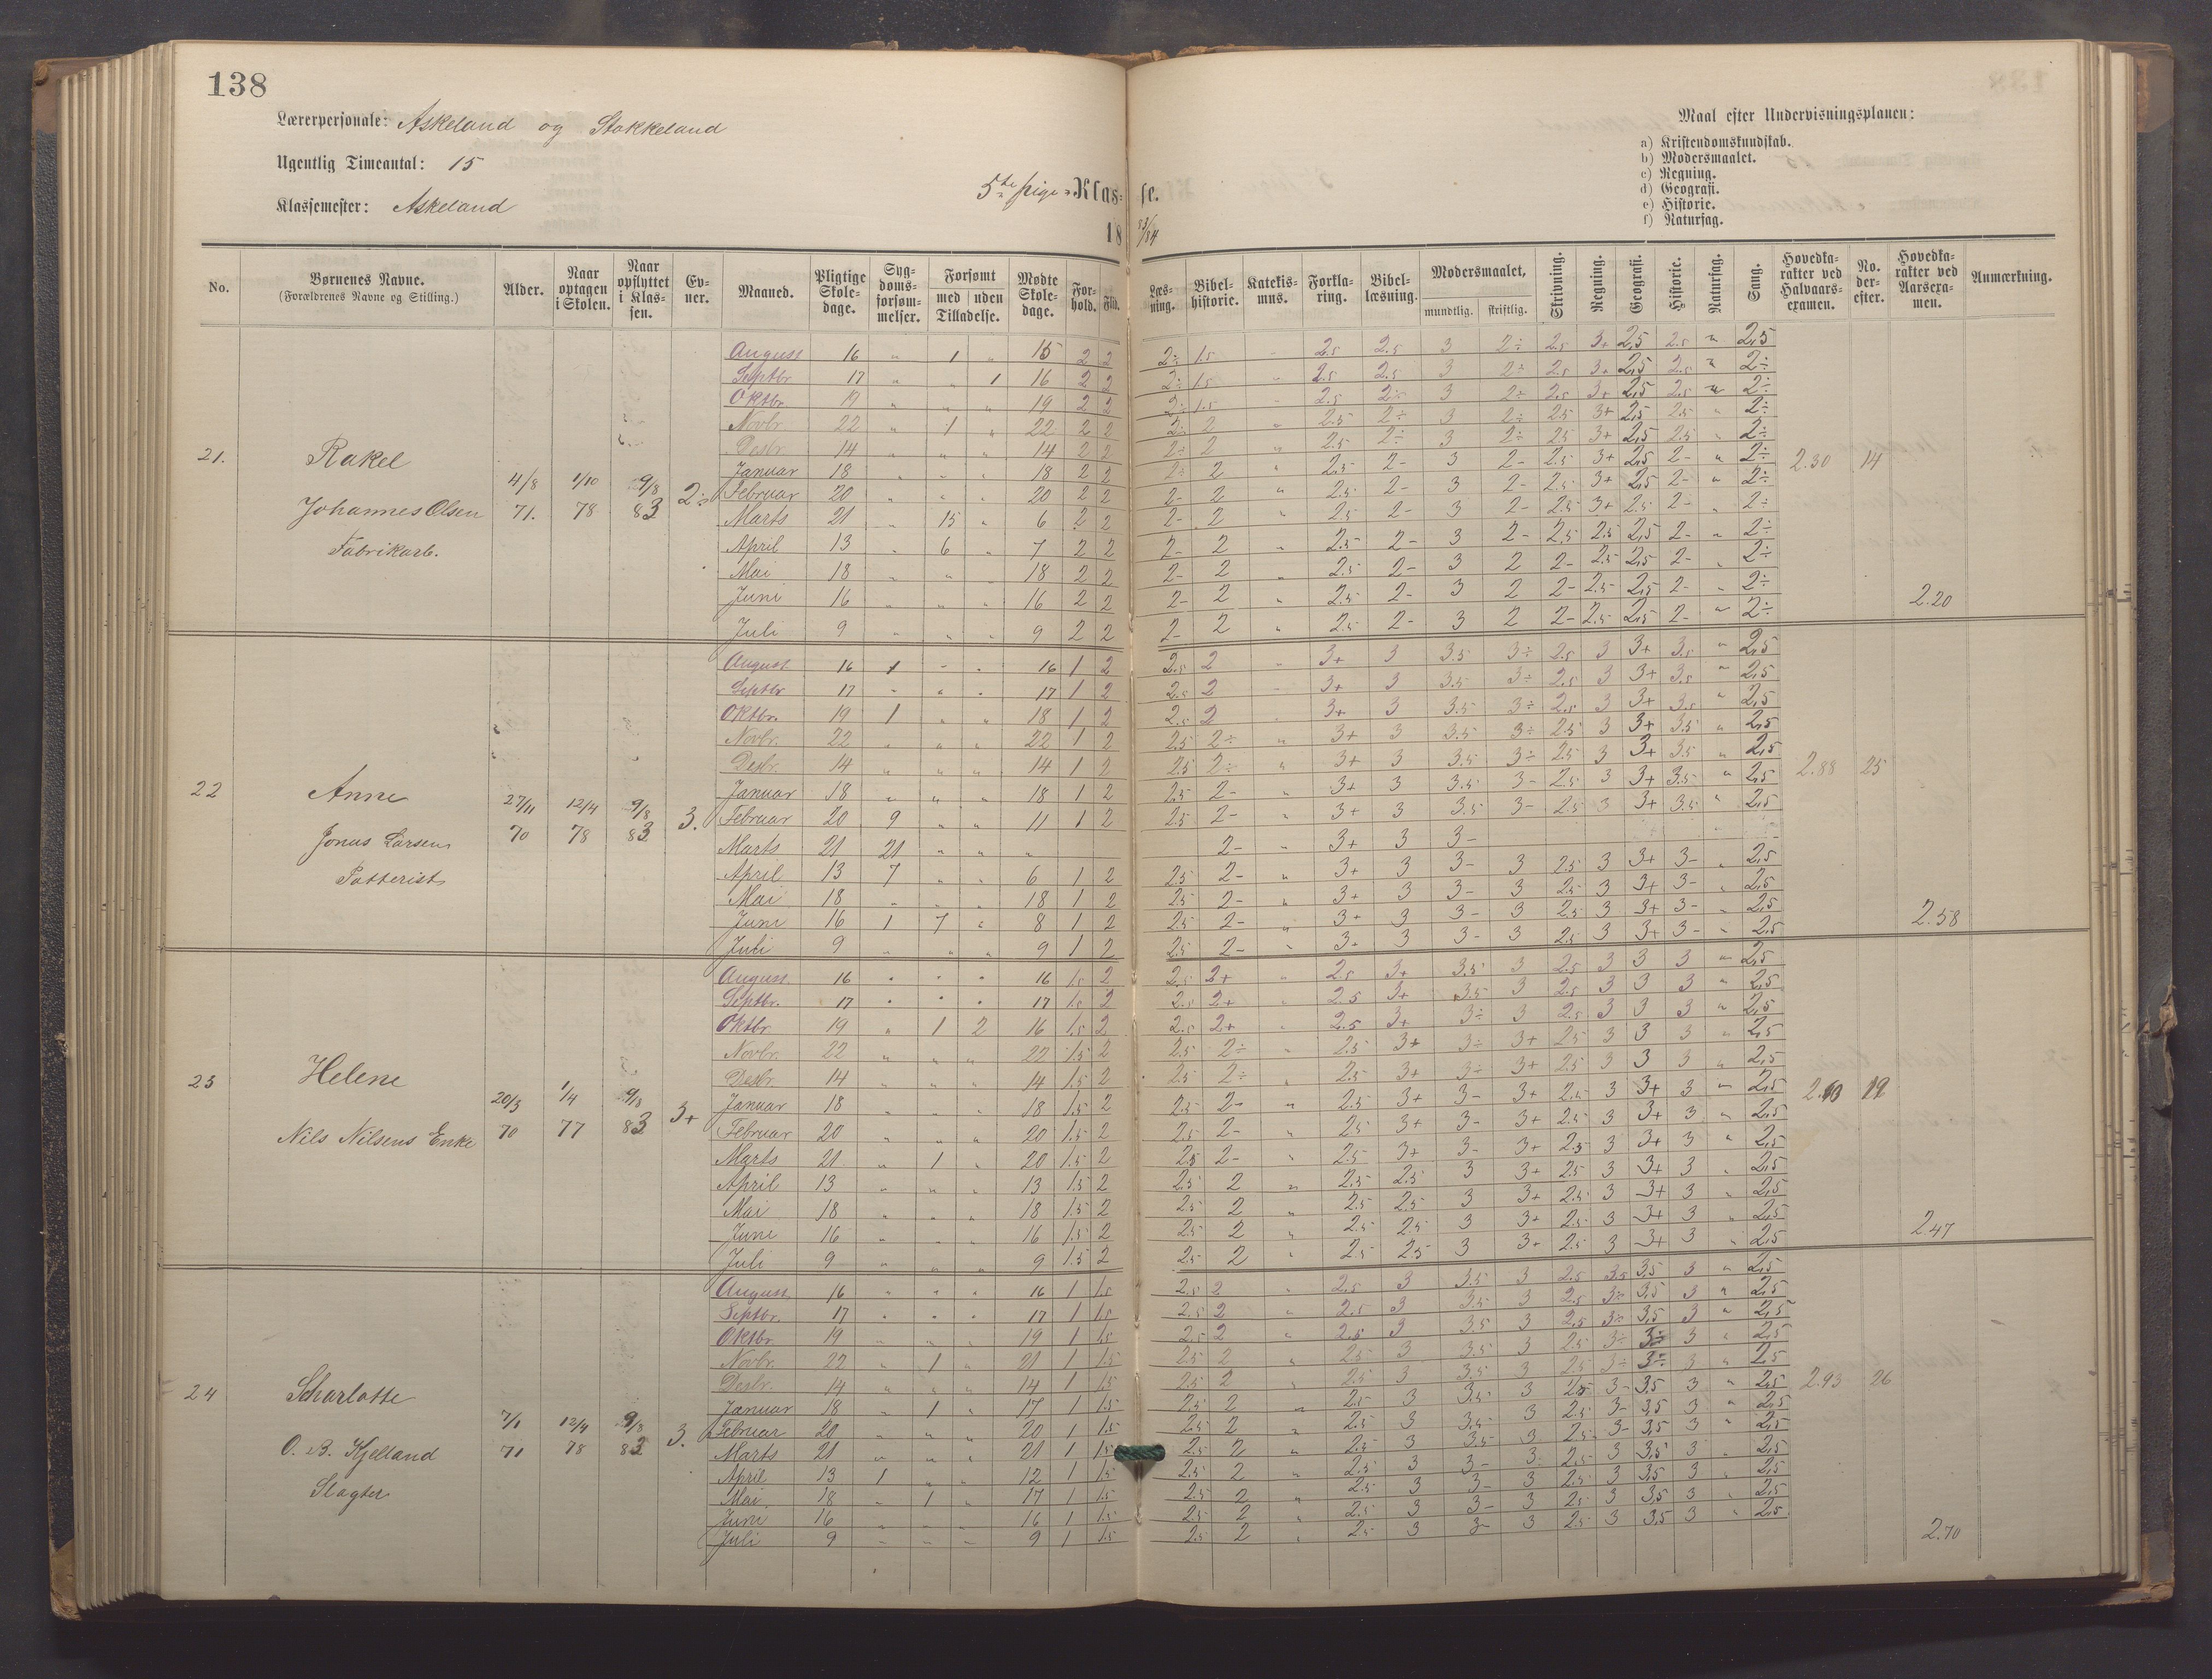 138
Lærerpersonale: Askeland og Stokkeland
Ugentlig Timeantal: 15
Klassemester: Askeland
5te pige-Klas- se.
18 83/84
Maal efter Undervisningsplanen:
a) Kristendomskundskab.
b) Modersmaalet.
c) Regning.
d) Geografi.
e) Historie.
f) Naturfag.
No. Børnenes Navne. (Forældrenes Navne og Stilling.) Alder. Naar optagen i Skolen. Naar opflyttet i Klassen. Evner. Maaned. Pligtige Skoledage. Sygdomsforsømmelser. Forsømt med uden Tilladelse. Mødte Skoledage. Forhold. Flid. Læsning. Bibelhistorie. Katekismus. Forklaring. Bibellæsning. Modersmaalet, mundtlig. skriftlig. Skrivning. Regning. Geografi. Historie. Naturfag. Sang. Hovedkarakter ved Halvaarsexamen. No. derefter. Hovedkarakter ved Aarsexamen. Anmærkning.
21. Rakel
Johannes Olsen
Fabrikarb.
4/8 71. 1/10 78 9/8 83 2÷
August 16 " 1 " 15 2 2 2÷ 1.5 " 2.5 2.5 3 2÷ 2.5 3+ 2,5 2.5 " 2,5
Septbr 17 " " 1 16 2 2 2÷ 1.5 " 2.5 2.5 3 2÷ 2.5 3+ 2,5 2.5 " 2÷
Oktbr. 19 " " " 19 2 2 2÷ 1.5 " 2.5 2÷ 3 2÷ 2.5 3+ 2,5 2.5 " 2÷
Novbr. 22 " 1 " 22 2 2 2÷ 2 " 2.5 2÷ 3 2÷ 2.5 3+ 2,5 2.5 " 2÷
Desbr. 14 " " " 14 2 2 2÷ 2 " 2.5 2÷ 3 2÷ 2.5 3+ 2,5 2.5 " 2÷
Januar 18 " " " 18 2 2 2÷ 2 " 2.5 2- 3 2- 2.5 3+ 2,5 2- " 2÷ 2.30 14
Februar 20 " " " 20 2 2 2- 2 " 2.5 2- 3 2- 2.5 3+ 2,5 2- " 2÷
Marts 21 " 15 " 6 2 2 2- 2 " 2.5 2- 3 2- 2.5 3+ 2.5 2- " 2÷
April 13 " 6 " 7 2 2 2- 2 " 2.5 2- 3 2- 2,5 2.5 2,5 2- " 2÷
Mai 18 " " " 18 2 2 2- 2 " 2.5 2- 3 2 2- 2.5 2,5 2- " 2÷
Juni 16 " " " 16 2 2 2- 2 " 2.5 2- 3 2 2- 2.5 2,5 2- " 2÷ 2.20
Juli 9 " " " 9 2 2 2- 2 " 2.5 2- 3 2 2- 2.5 2,5 2- " 2÷
22 Anne
Jonas Larsen
Potterist
27/11 70 12/4 78 9/8 83 3.
August 16 1 " " 16 1 2 2.5 2 " 3+ 3 3.5 3÷ 2.5 3 3+ 3.5 " 2,5
Septbr 17 " " " 17 1 2 2.5 2 " 3+ 3 3.5 3÷ 2.5 3 3+ 3.5 " 2,5
Oktbr. 19 1 " " 18 1 2 2.5 2 " 3+ 3 3.5 3÷ 2.5 3 3+ 3.5 " 2,5
Novbr. 22 " " " 22 1 2 2.5 2÷ " 3+ 3 3.5 3÷ 2.5 3 3+ 3.5 " 2,5
Desbr. 14 " " " 14 1 2 2.5 2÷ " 3+ 3 3.5 3÷ 2.5 3 3+ 3.5 " 2,5
Januar 18 " " " 18 1 2 2.5 2- " 3+ 3 3.5 3- 2.5 3 3+ 3.5 " 2,5 2.88 25
Februar 20 9 " " 11 1 2 2.5 2- " 3+ 3 3.5 3- 2.5 3 3+ 3.5 " 2,5
Marts 21 21 " " " 2- " 3+ 3 3-
April 13 7 " " 6 1 2 2.5 2- " 3+ 3 3- 3 2.5 3 3+ 3- " 2,5
Mai 18 " " " 18 1 2 2.5 2- " 3+ 3 3- 3 2.5 3 3+ 3- " 2,5
Juni 16 1 7 " 8 1 2 2.5 2- " 3+ 3 3- 3 2.5 3 3+ 3- " 2,5 2.58
Juli 9 " " " 9 1 2 2.5 2- " 3+ 3 3- 3 2.5 3 3+ 3- " 2,5
23 Helene
Nils Nilsens Enke
20/3 70 1/4 77 9/8 83 3+
August. 16 " " " 16 1.5 2 2.5 2+ " 2.5 3+ 3.5 3 2.5 3 3 3 " 2,5
Septbr. 17 " " " 17 1.5 2 2.5 2+ " 2.5 3+ 3.5 3 2.5 3 3 3 " 2,5
Oktbr 19 " 1 2 16 1.5 2 2.5 2+ " 2.5 3+ 3÷ 3 2.5 3 3 3 " 2,5
Novbr. 22 " " " 22 1.5 2 2.5 2÷ " 2.5 3+ 3÷ 3+ 2.5 3 3 3 " 2,5
Desbr. 14 " " " 14 1.5 2 2.5 2÷ " 2.5 3+ 3÷ 3+ 2.5 3 3 3 " 2,5
Januar 18 " " " 18 1.5 2 2.5 2- " 2.5 3+ 3- 3+ 2.5 3 3+ 3 " 2,5 19
Februar 20 " " " 20 1.5 2 2.5 2- " 2.5 3+ 3- 3+ 2.5 3 3+ 3 " 2,5
Marts 21 " 1 " 20 1.5 2 2.5 2- " 2.5 3+ 3- 3+ 2.5 3 3+ 3 " 2,5
April 13 " " " 13 1.5 2 2.5 2 " 2.5 2.5 3 3+ 2.5 3 3+ 3 " 2,5
Mai 18 " " " 18 1.5 2 2.5 2 " 2.5 2.5 3 3+ 2.5 3 3+ 3 " 2,5
Juni 16 " " " 16 1.5 2 2.5 2 " 2.5 2.5 3 3+ 2.5 3 3+ 3 " 2,5 2.47
Juli 9 " " " 9 1.5 2 2.5 2 " 2.5 2.5 3 3+ 2.5 3 3+ 3 " 2,5
24 Scharlotte
O. B. Kjelland
Slagter
7/1 71 12/4 78 9/8 83 3.
August 16 " " " 16 1 1.5 2.5 2 " 2.5 3 3.5 3 2.5 3.5 3,5 3 " 2,5
Septbr. 17 " " " 17 1 1.5 2.5 2 " 2.5 3 3.5 3 2.5 3÷ 3,5 3 " 2,5
Oktbr. 19 " " " 19 1 1.5 2.5 2 " 2.5 3 3.5 3 2,5 3÷ 3,5 3 " 2,5
Novbr. 22 " 1 " 21 1 1.5 2.5 2 " 2.5 3 3.5 3 2.5 3÷ 3÷ 3 " 2,5
Desbr. 14 " " " 14 1 1.5 2.5 2 " 2.5 3 3.5 3 2.5 3÷ 3÷ 3 " 2,5
Januar 18 " 1 " 17 1 1.5 2.5 2 " 2.5 3 3.5 3 2.5 3- 3,5 3 " 2,5 2.93 26
Februar 20 " " " 20 1 1.5 2.5 2 " 2.5 3 3.5 3 2.5 3- 3,5 3 " 2,5
Marts 21 " " " 21 1 1.5 2.5 2 " 2.5 3 3.5 3 2.5 3- 3,5 3 " 2,5
April 13 1 " " 12 1 1.5 2.5 2 " 2.5 3 3- 3 2.5 3 3,5 3 " 2,5
Mai 18 " 1 " 17 1 1.5 2.5 2 " 2.5 3 3- 3 2.5 3 3,5 3 " 2,5
Juni 16 " " " 16 1 1.5 2.5 2 " 2.5 3 3- 3 2.5 3 3,5 3 " 2,5
Juli 9 " " " 9 1 1.5 2.5 2 " 2.5 3 3- 3 2.5 3 3,5 3 " 2,5 2.70